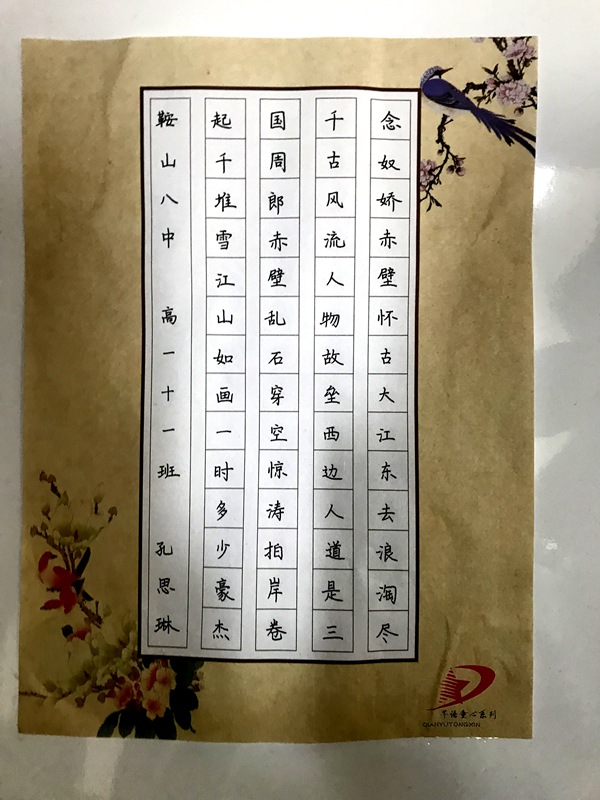 念奴娇赤壁怀古大江东去浪淘尽
千古风流人物故垒西边人道是三
国周郎赤壁乱石穿空惊涛拍岸卷
起千堆雪江山如画一时多少豪杰
鞍山八中 高一十一班 孔思琳
芊语童心系列
QIANYUTONGXIN